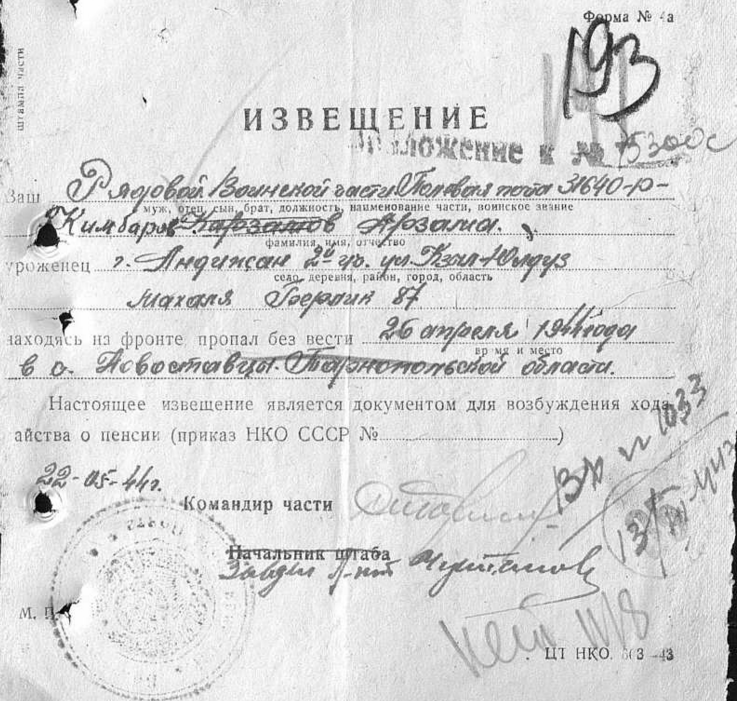 Форма № 4а
193
штампа части
ИЗВЕЩЕНИЕ
Приложение к № 75300с
Ваш Рядовой Воинской части Полевая почта 31640-Ю-
муж, отец, сын, брат, должность, наименование части, воинское звание
Кимбаров Арзама.
фамилия, имя, отчество
уроженец г. Андижан 2й уч. ул. Кзал-Юлдуз
село, деревня, район, город, область
махаля Берлик 87
находясь на фронте пропал без вести 26 апреля 1944 года
время и место
в с. Новоставцы. Тарнопольской области.
Настоящее извещение является документом для возбуждения хода
айства о пенсии (приказ НКО СССР № )
22-05-44г.
Командир части
Начальник штаба
М. П.
ЦТ НКО. 563—43